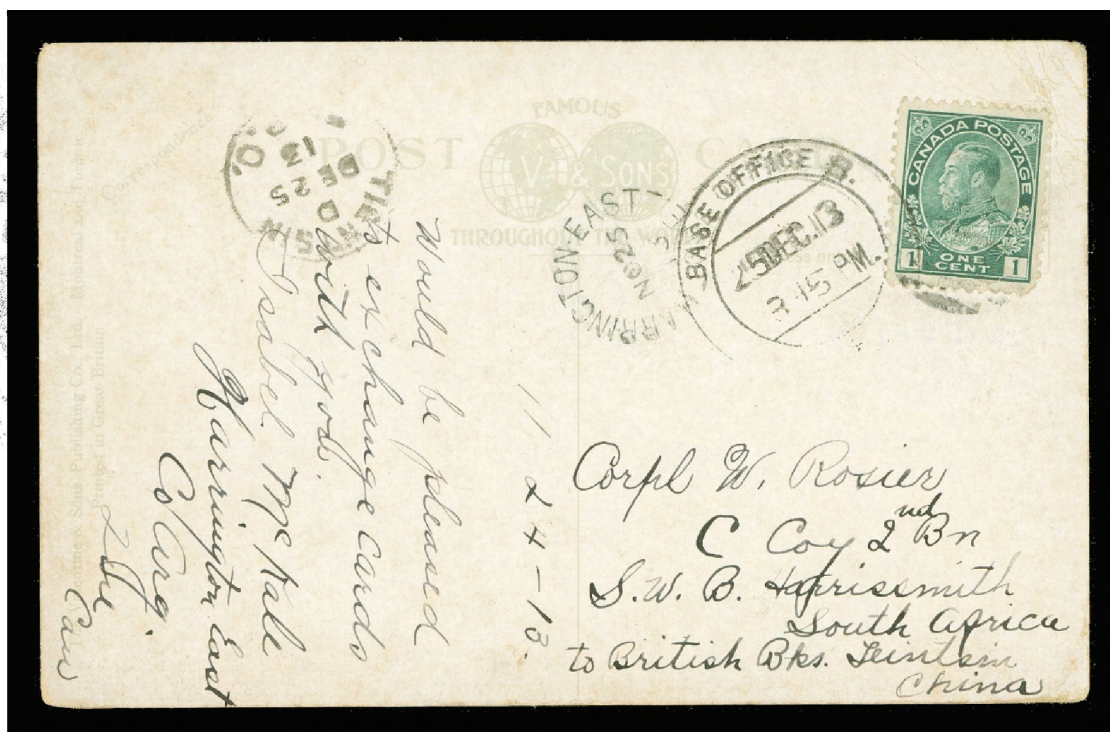 FAMOUS
POST CARD
V & SONS
THROUGHOUT THE WORLD
Correspondence
Valentine & Sons Publishing Co., Ltd. Montreal and Toronto
Printed in Great Britain
TIENTSIN
D
DE 25
13
HARRINGTON EAST
25
BASE OFFICE B.
25 DEC. 13
3.15 PM.
CANADA POSTAGE
1 ONE CENT 1
would be pleased
to exchange cards
with you.
Isabel McKale
Harrington East
Co Arg.
Que
Can
11 24-13.
Corpl W. Rosier
C Coy 2nd Bn
S.W.B. Harrismith
South Africa
to British Bks. Teintsin
China